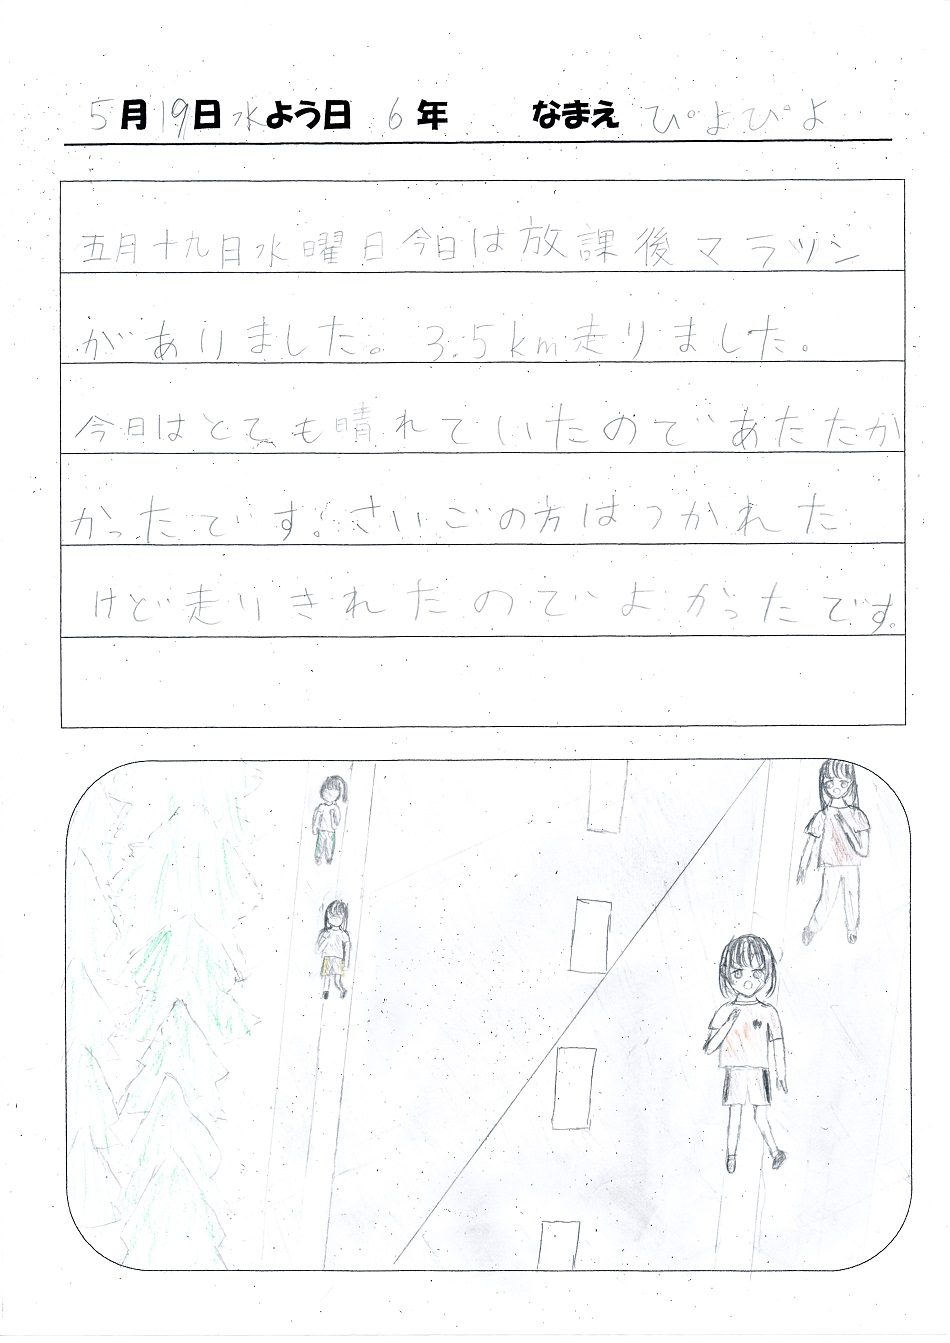 5月19日水よう日 6年 なまえ ぴよぴよ
五月十九日水曜日今日は放課後マラソン
がありました。3.5km走りました。
今日はとても晴れていたのであたたか
かったです。さいごの方はつかれた
けど走りきれたのでよかったです。